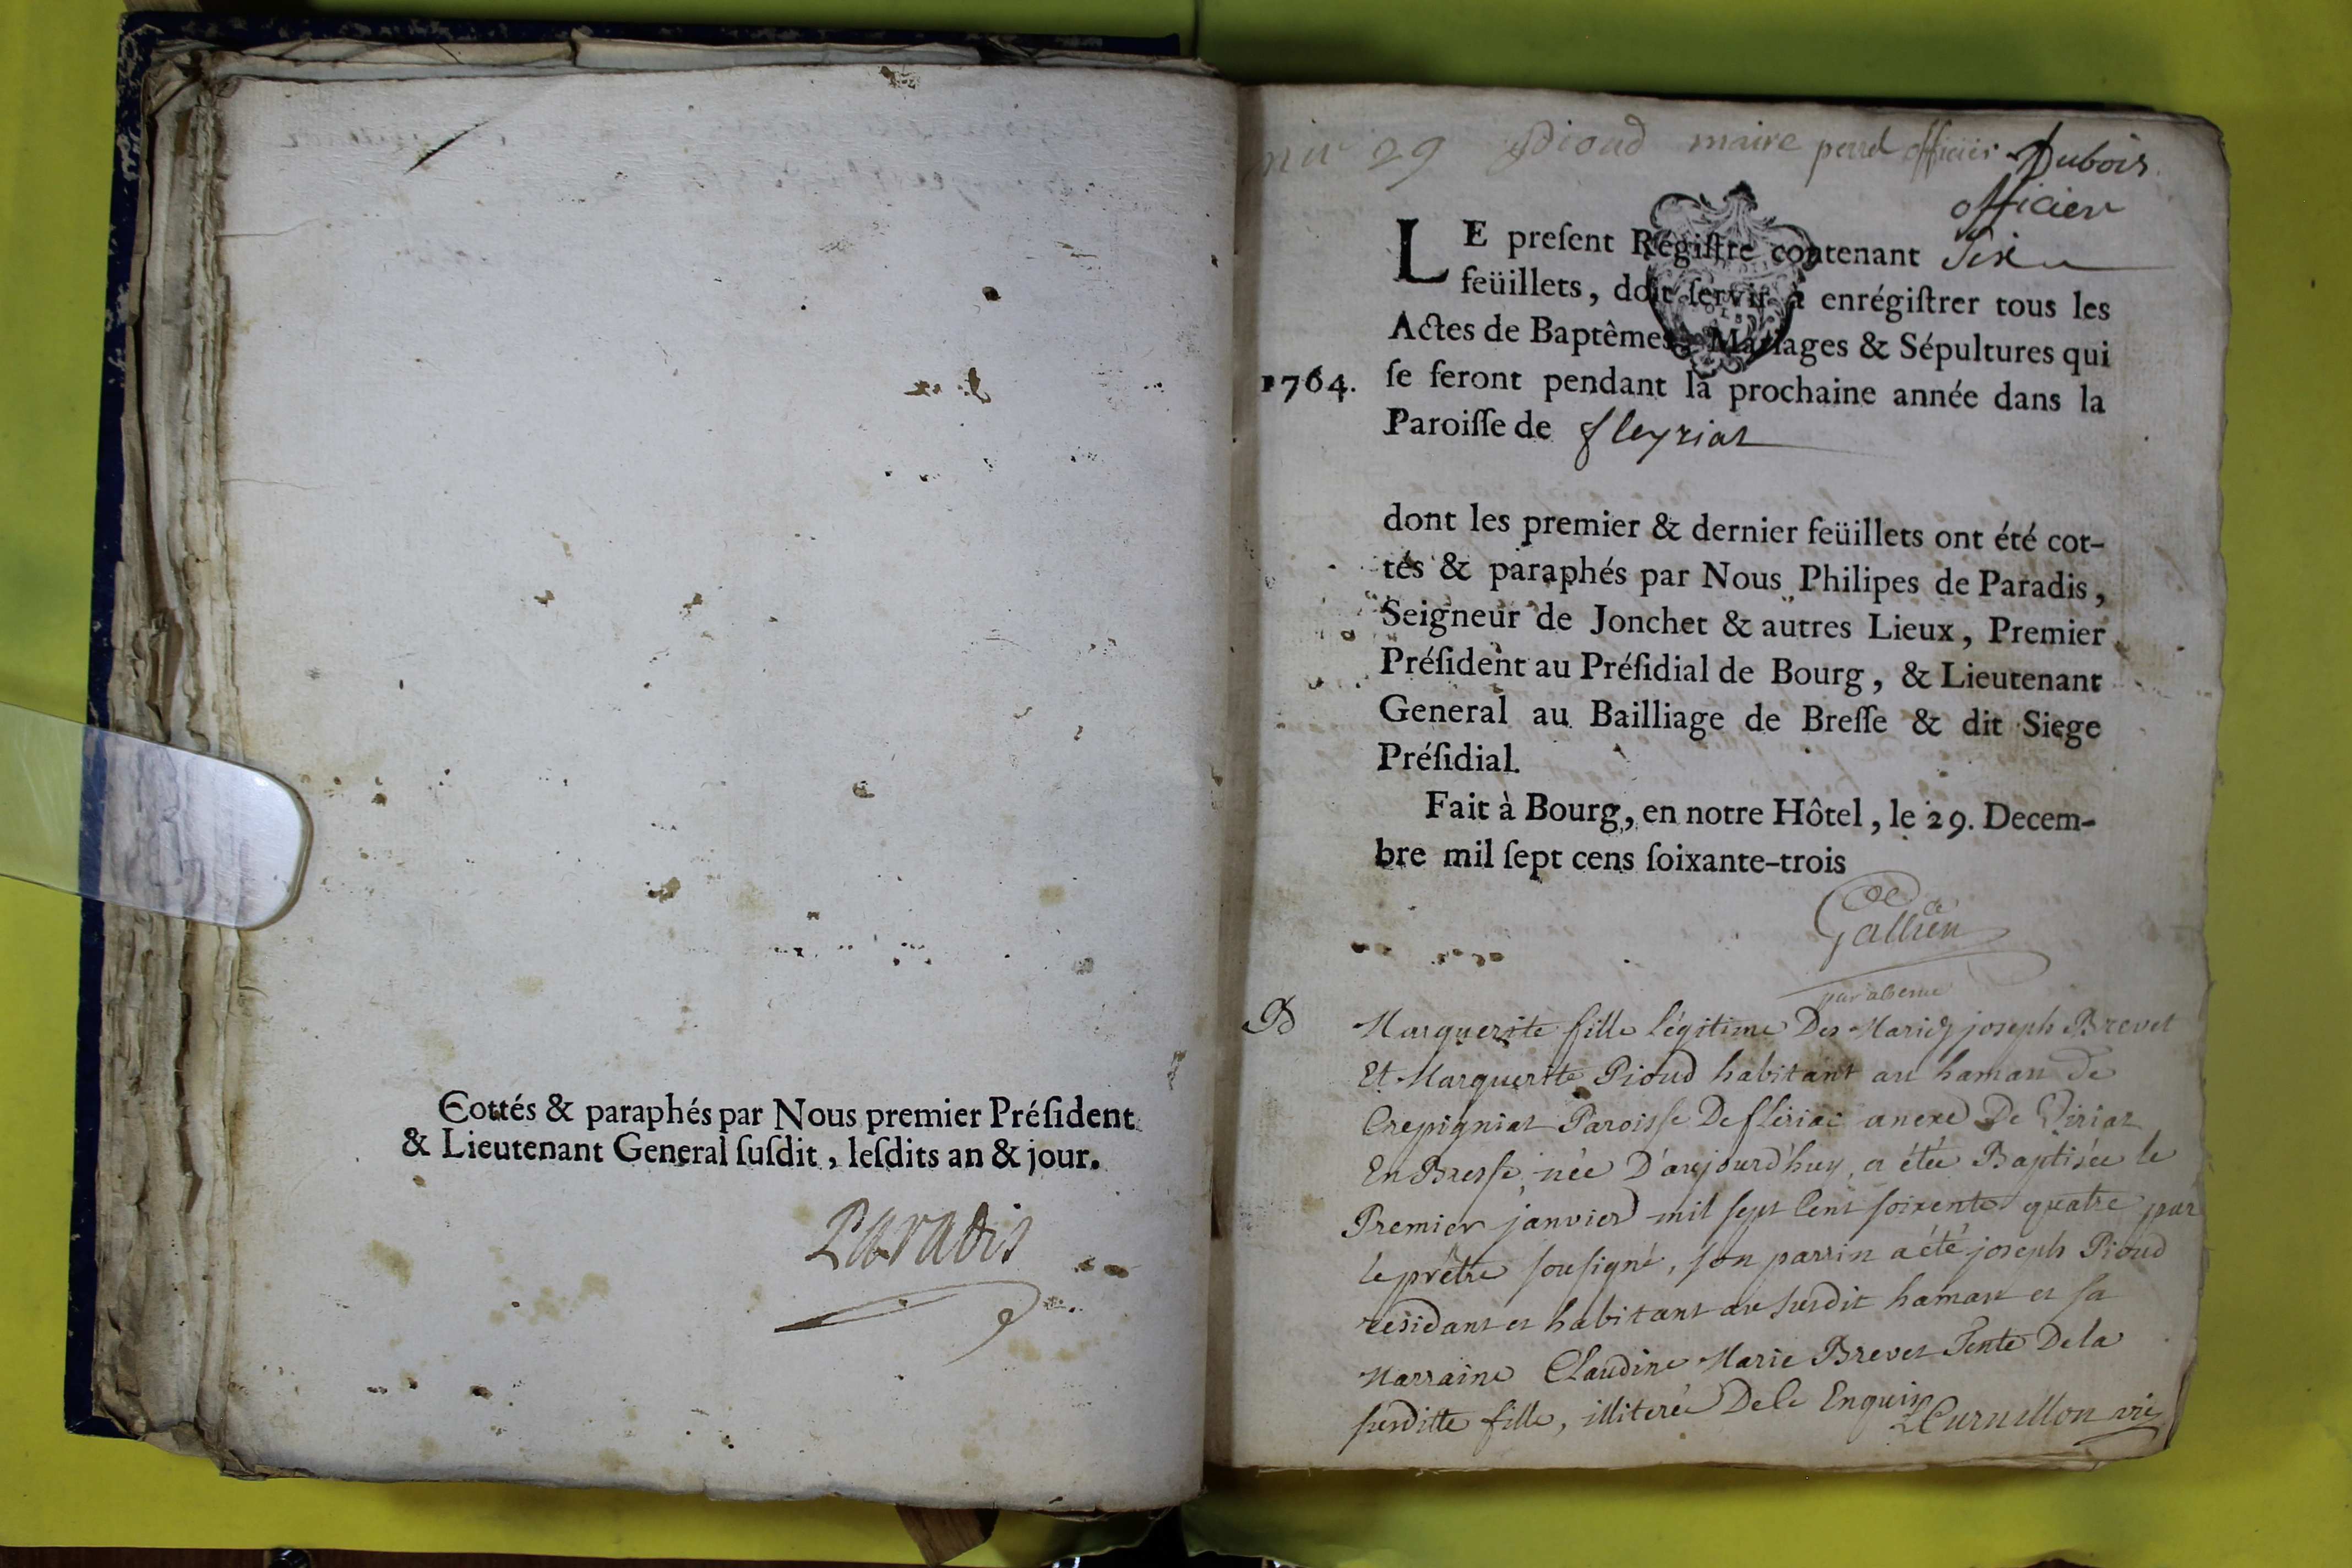 Cottés & paraphés par Nous premier Préſident
& Lieutenant General ſuſdit, leſdits an & jour.
Paradis
29 Pioud maire perret officier Dubois
officier
LE preſent Régiſtre contenant Six
feüillets, doit ſervir à enrégiſtrer tous les
Actes de Baptêmes, Mariages & Sépultures qui
1764. ſe feront pendant la prochaine année dans la
Paroiſſe de fleyriat
dont les premier & dernier feüillets ont été cot-
tés & paraphés par Nous Philipes de Paradis,
Seigneur de Jonchet & autres Lieux, Premier
Préſident au Préſidial de Bourg, & Lieutenant
General au Bailliage de Breſſe & dit Siege
Préſidial.
Fait à Bourg, en notre Hôtel, le 29. Decem-
bre mil ſept cens ſoixante-trois
Gallien
B Marguerite fille légitime Des Mariés joseph Brevet
Et Marguerite Pioud habitant au hamau De
Crepigniat Paroisse De fleriac anexe De Viriat
En Bresse, née D'aujourd'huy, a étée Baptisée le
Premier janvier mil sept Cent soixente quatre par
le prêtre sousigné, son parrin a été joseph Pioud
résidant et habitant au susdit hamau et sa
Marraine Claudine Marie Brevet Tente De la
susditte fille, illiterée De le Enquis
Curnillon vic